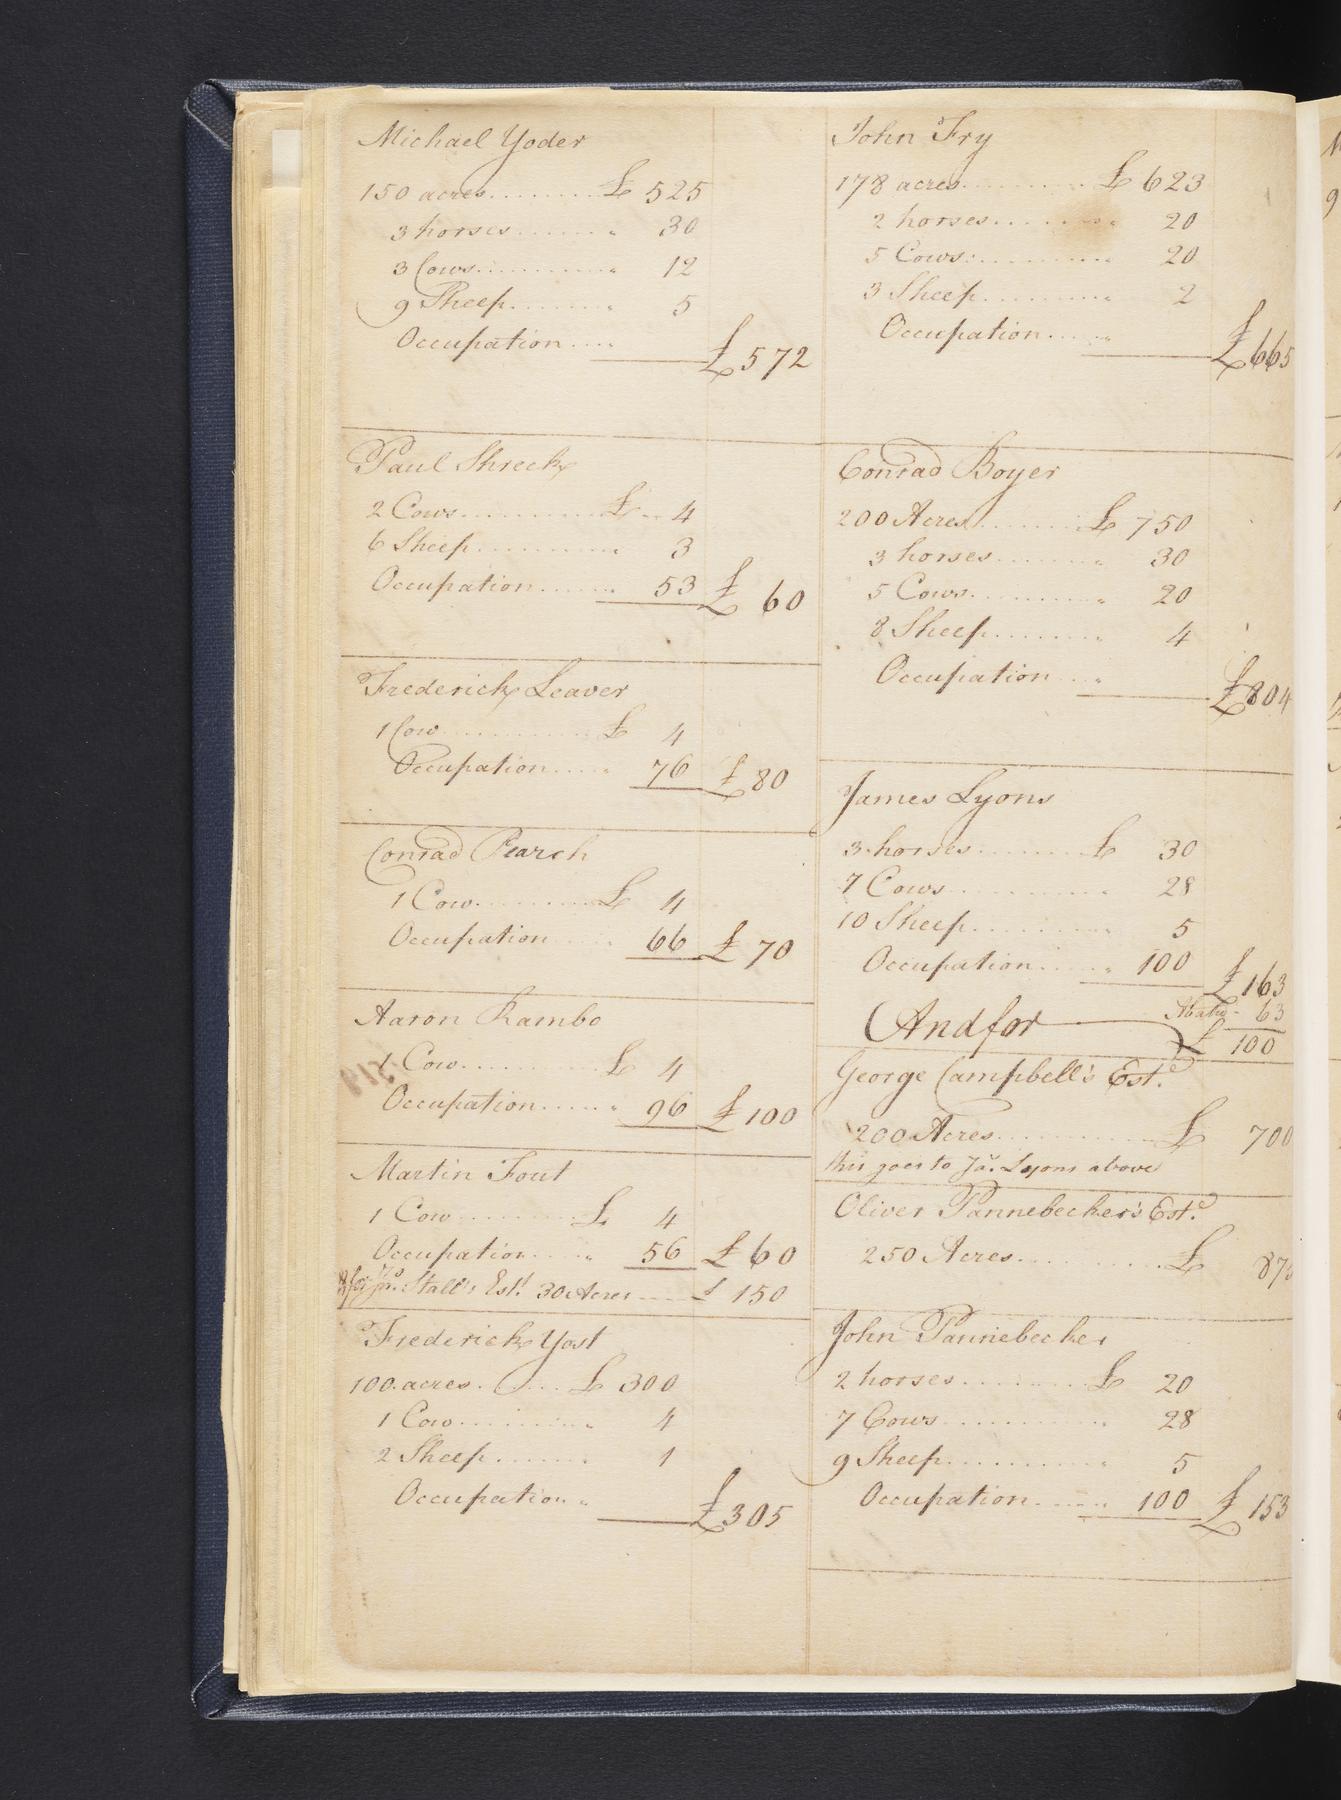 Michael Yoder
150 acres......... £ 525
3 horses....... " 30
3 Cows............ " 12
9 Sheep........ " 5
Occupation.... "
£572
Paul Shreck
2 Cows........... £ .. 4
6 Sheep............ " 3
Occupation....... " 53 £ 60
Frederick Leaver
1 Cow............. £ 4
Occupation..... " 76 £ 80
Conrad Pearch
1 Cow........... £ 4
Occupation..... " 66 £ 70
Aaron Rambo
1 Cow............. £ 4
Occupation...... " 96 £ 100
Martin Fout
1 Cow........... £ 4
Occupation..... " 56 £ 60
for Jno. Stall's Est. 30 Acres.... £ 150
Frederick Yost
100 acres........ £ 300
1 Cow........... " 4
2 Sheep........ " 1
Occupation.. "
£305
John Fry
178 acres............ £ 623
2 horses........... " 20
5 Cows............ " 20
3 Sheep............ " 2
Occupation..... "
£665
Conrad Boyer
200 Acres.......... £ 750
3 horses......... " 30
5 Cows............ " 20
8 Sheep......... " 4
Occupation... "
£804
James Lyons
3 horses.......... £ 30
7 Cows............ " 28
10 Sheep........... " 5
Occupation...... " 100
£163
63
And for £ 100
George Campbell's Est.d
200 Acres.............. £ 700
this goes to Jas. Lyons above
Oliver Pannebecker's Est.d
250 Acres.............. £
John Pannebecker
2 horses.......... £ 20
7 Cows............ " 28
9 Sheep........... " 5
Occupation..... " 100 £ 153